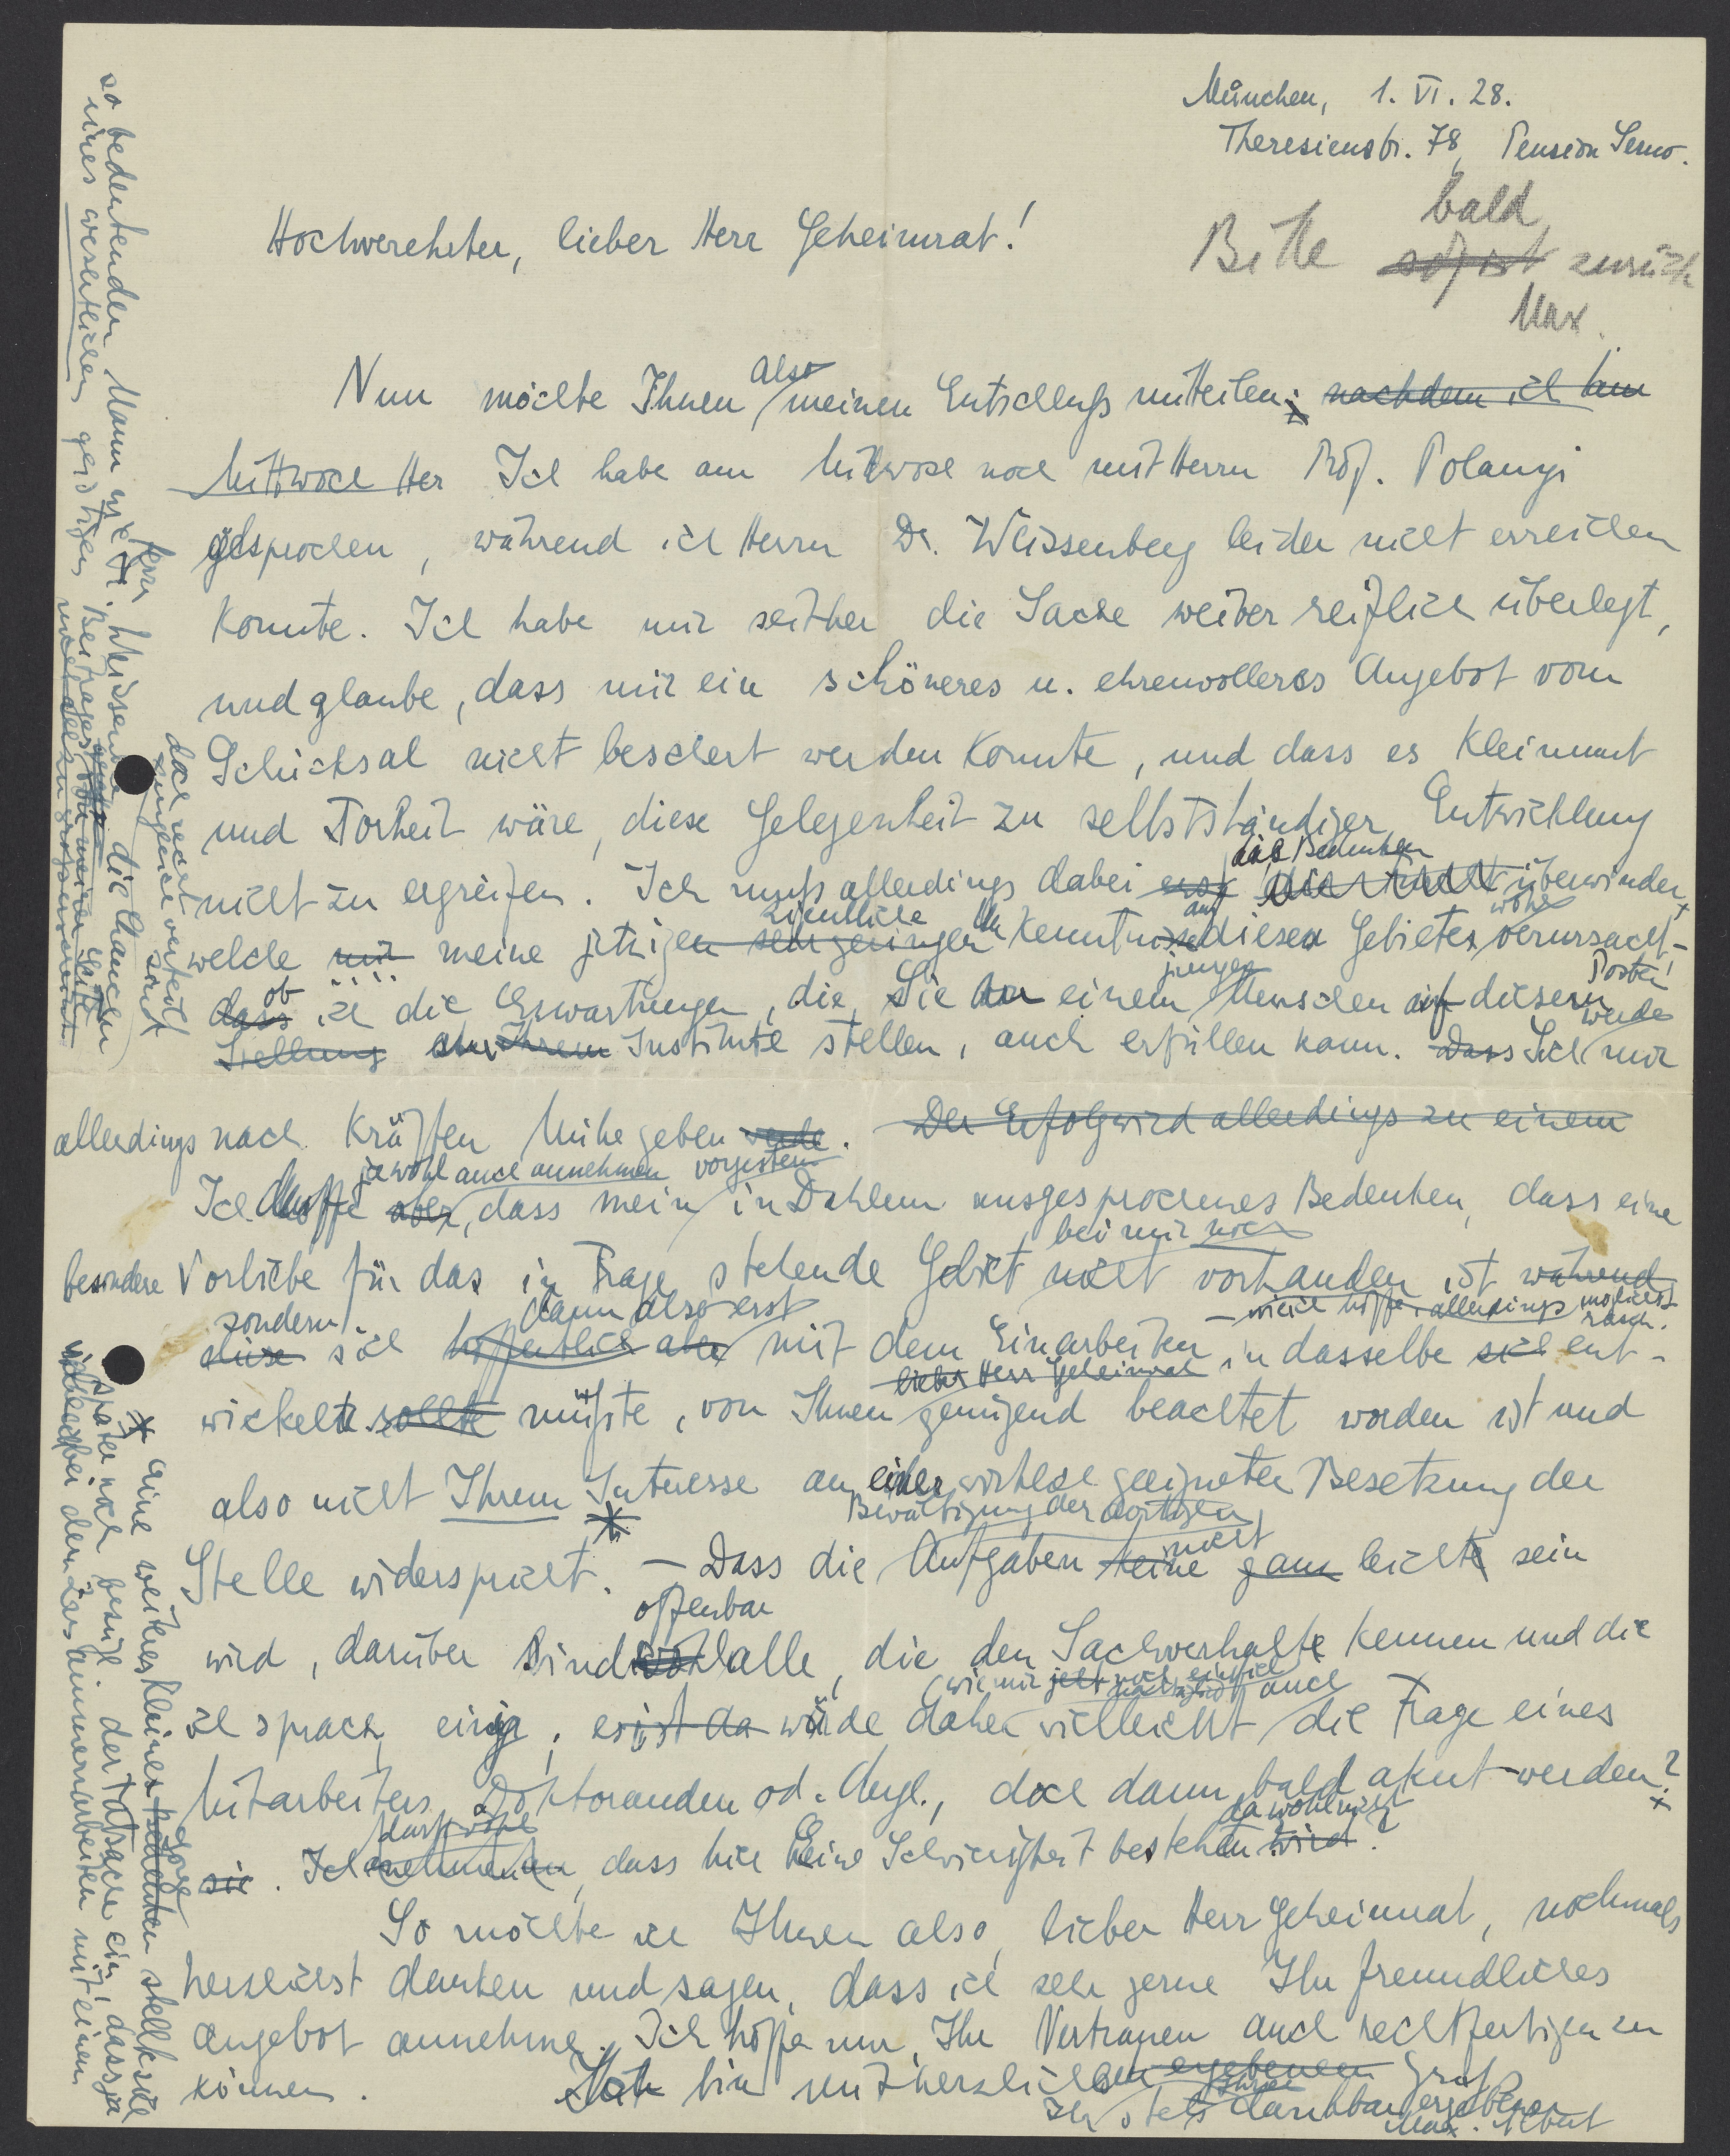 München, 1. VI. 28.
Theresienstr. 78, Pension
Hochverehrter, lieber Herr Geheimrat!
bald
Bitte sofort zurück
Max.
also
Nun möchte Ihnen meinen Entschluß mitteilen; nachdem ich am
Mittwoch Her Ich habe am Mittwoch noch mit Herrn Prof. Polanyi
gesprochen, während ich Herrn Dr. Weissenberg leider nicht erreichen
konnte. Ich habe mir seither die Sache weiter reiflich überlegt,
und glaube, dass mir ein schöneres u. ehrenvolleres Angebot vom
Schicksal nicht beschert werden konnte, und dass es Kleinmut
und Torheit wäre, diese Gelegenheit zu selbstständiger Entwicklung
das Bedenken
nicht zu ergreifen. Ich muß allerdings dabei überwinden,
auf wohl
welche mir meine jetzigen sehr geringen Kenntnisse dieses Gebietes verursacht -
ob jungen Posten!
dass ich die Erwartungen, die Sie an einem Menschen auf diesem
werde
Stellung Ihrem Institute stellen, auch erfüllen kann. Dass Ich mir
allerdings nach Kräften Mühe geben werde. Der Erfolg wird allerdings zu einem
ja wohl auch annehmen vorgestern
Ich aber, dass mein in Dahlem ausgesprochenes Bedenken, dass eine
bei mir noch
besondere Vorliebe für das in Frage stehende Gebiet nicht vorhanden ist während
sondern dann also erst - wie ich hoffe, allerdings möglichst rasch.
diese sich hoffentlich aber mit dem Einarbeiten in dasselbe sich ent-
lieber Herr Geheimrat
wickeln sollte müßte, von Ihnen genügend beachtet worden ist und
also nicht Ihrem Interesse an einer wirklich geeigneten Besetzung der
Bewältigung der dortigen
Stelle widerspricht. * - Dass die Aufgaben keine nicht ganz leicht sein
offenbar
wird, darüber sind wohl alle, die den Sachverhalt kennen und die
(wie mir auch
ich sprach, einig; es ist da würde daher vielleicht die Frage eines
Mitarbeiters, Doktoranden od. dergl., doch dann bald akut werden?
darf wohl da wohl nicht
sie. Ich annehmen, dass hier keine Schwierigkeit bestehen wird?
So möchte ich Ihnen also, lieber Herr Geheimrat, nochmals
herzlichst danken und sagen, dass ich sehr gerne Ihr freundliches
Angebot annehme. Ich hoffe nur, Ihr Vertrauen auch rechtfertigen zu
können. Ich bin mit herzlichen ergebenem Gruß
Ihr stets dankbar ergebener
so bedeutender Mann wie Herr Dr. Weissenberg die Chancen
eines wesentlichen geistigen Beitrages von meiner Seite
nicht allzu groß
doch recht
zugleich verteilt
sind
* eine weitere kleine Bedenken Sorge stellt sich
später noch bezügl. der Tatsache ein, dass ja
bei dem Zusammenarbeiten mit einem